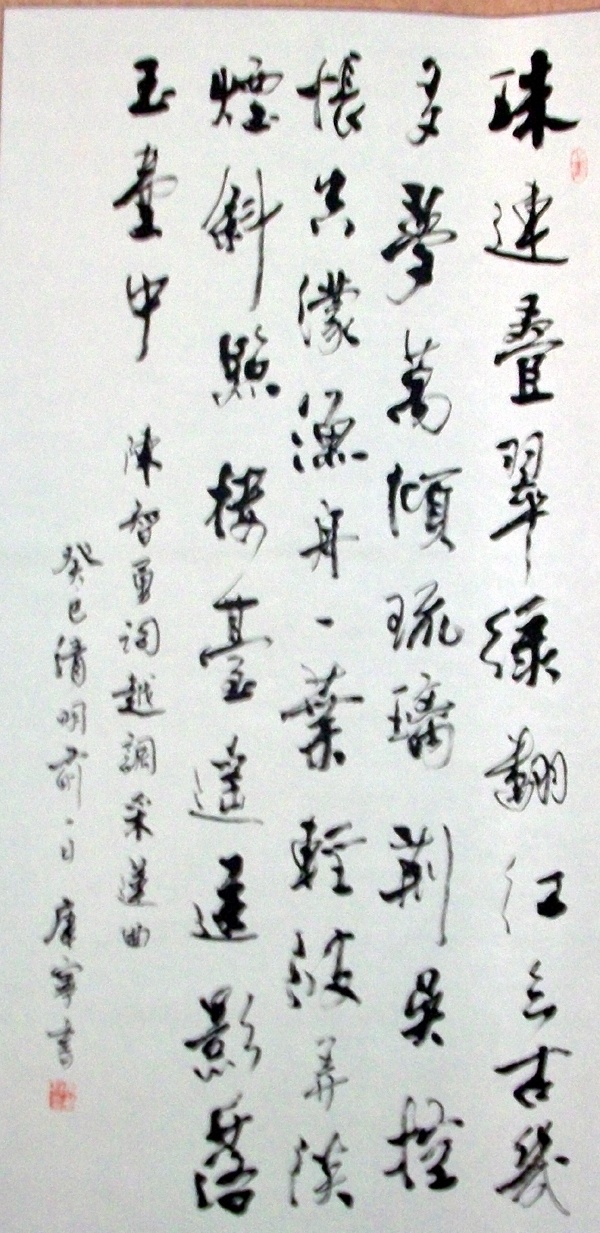 珠連疊翠綠翻紅亘古幾
多夢萬頃琉璃荆吳控
悵空濛漁舟一葉輕波弄淡
煙斜照樓臺遥遥影落
玉臺中
陳智勇詞越調采蓮曲
癸巳清明前一日康寧書